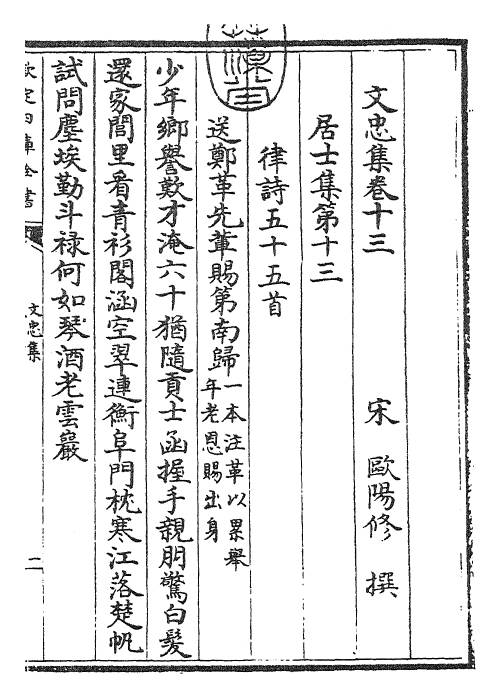 文忠集卷十三
宋 歐陽修 撰
居士集第十三
律詩五十五首
送鄭革先軰賜第南歸一本注革以累舉年老恩賜出身
少年鄉譽歎才淹六十猶隨貢士函握手親朋驚白髪
還家閭里看青衫閣涵空翠連衡阜門枕寒江落楚帆
試問塵埃勤斗禄何如琴酒老雲巖
欽定四庫全書
文忠集
二